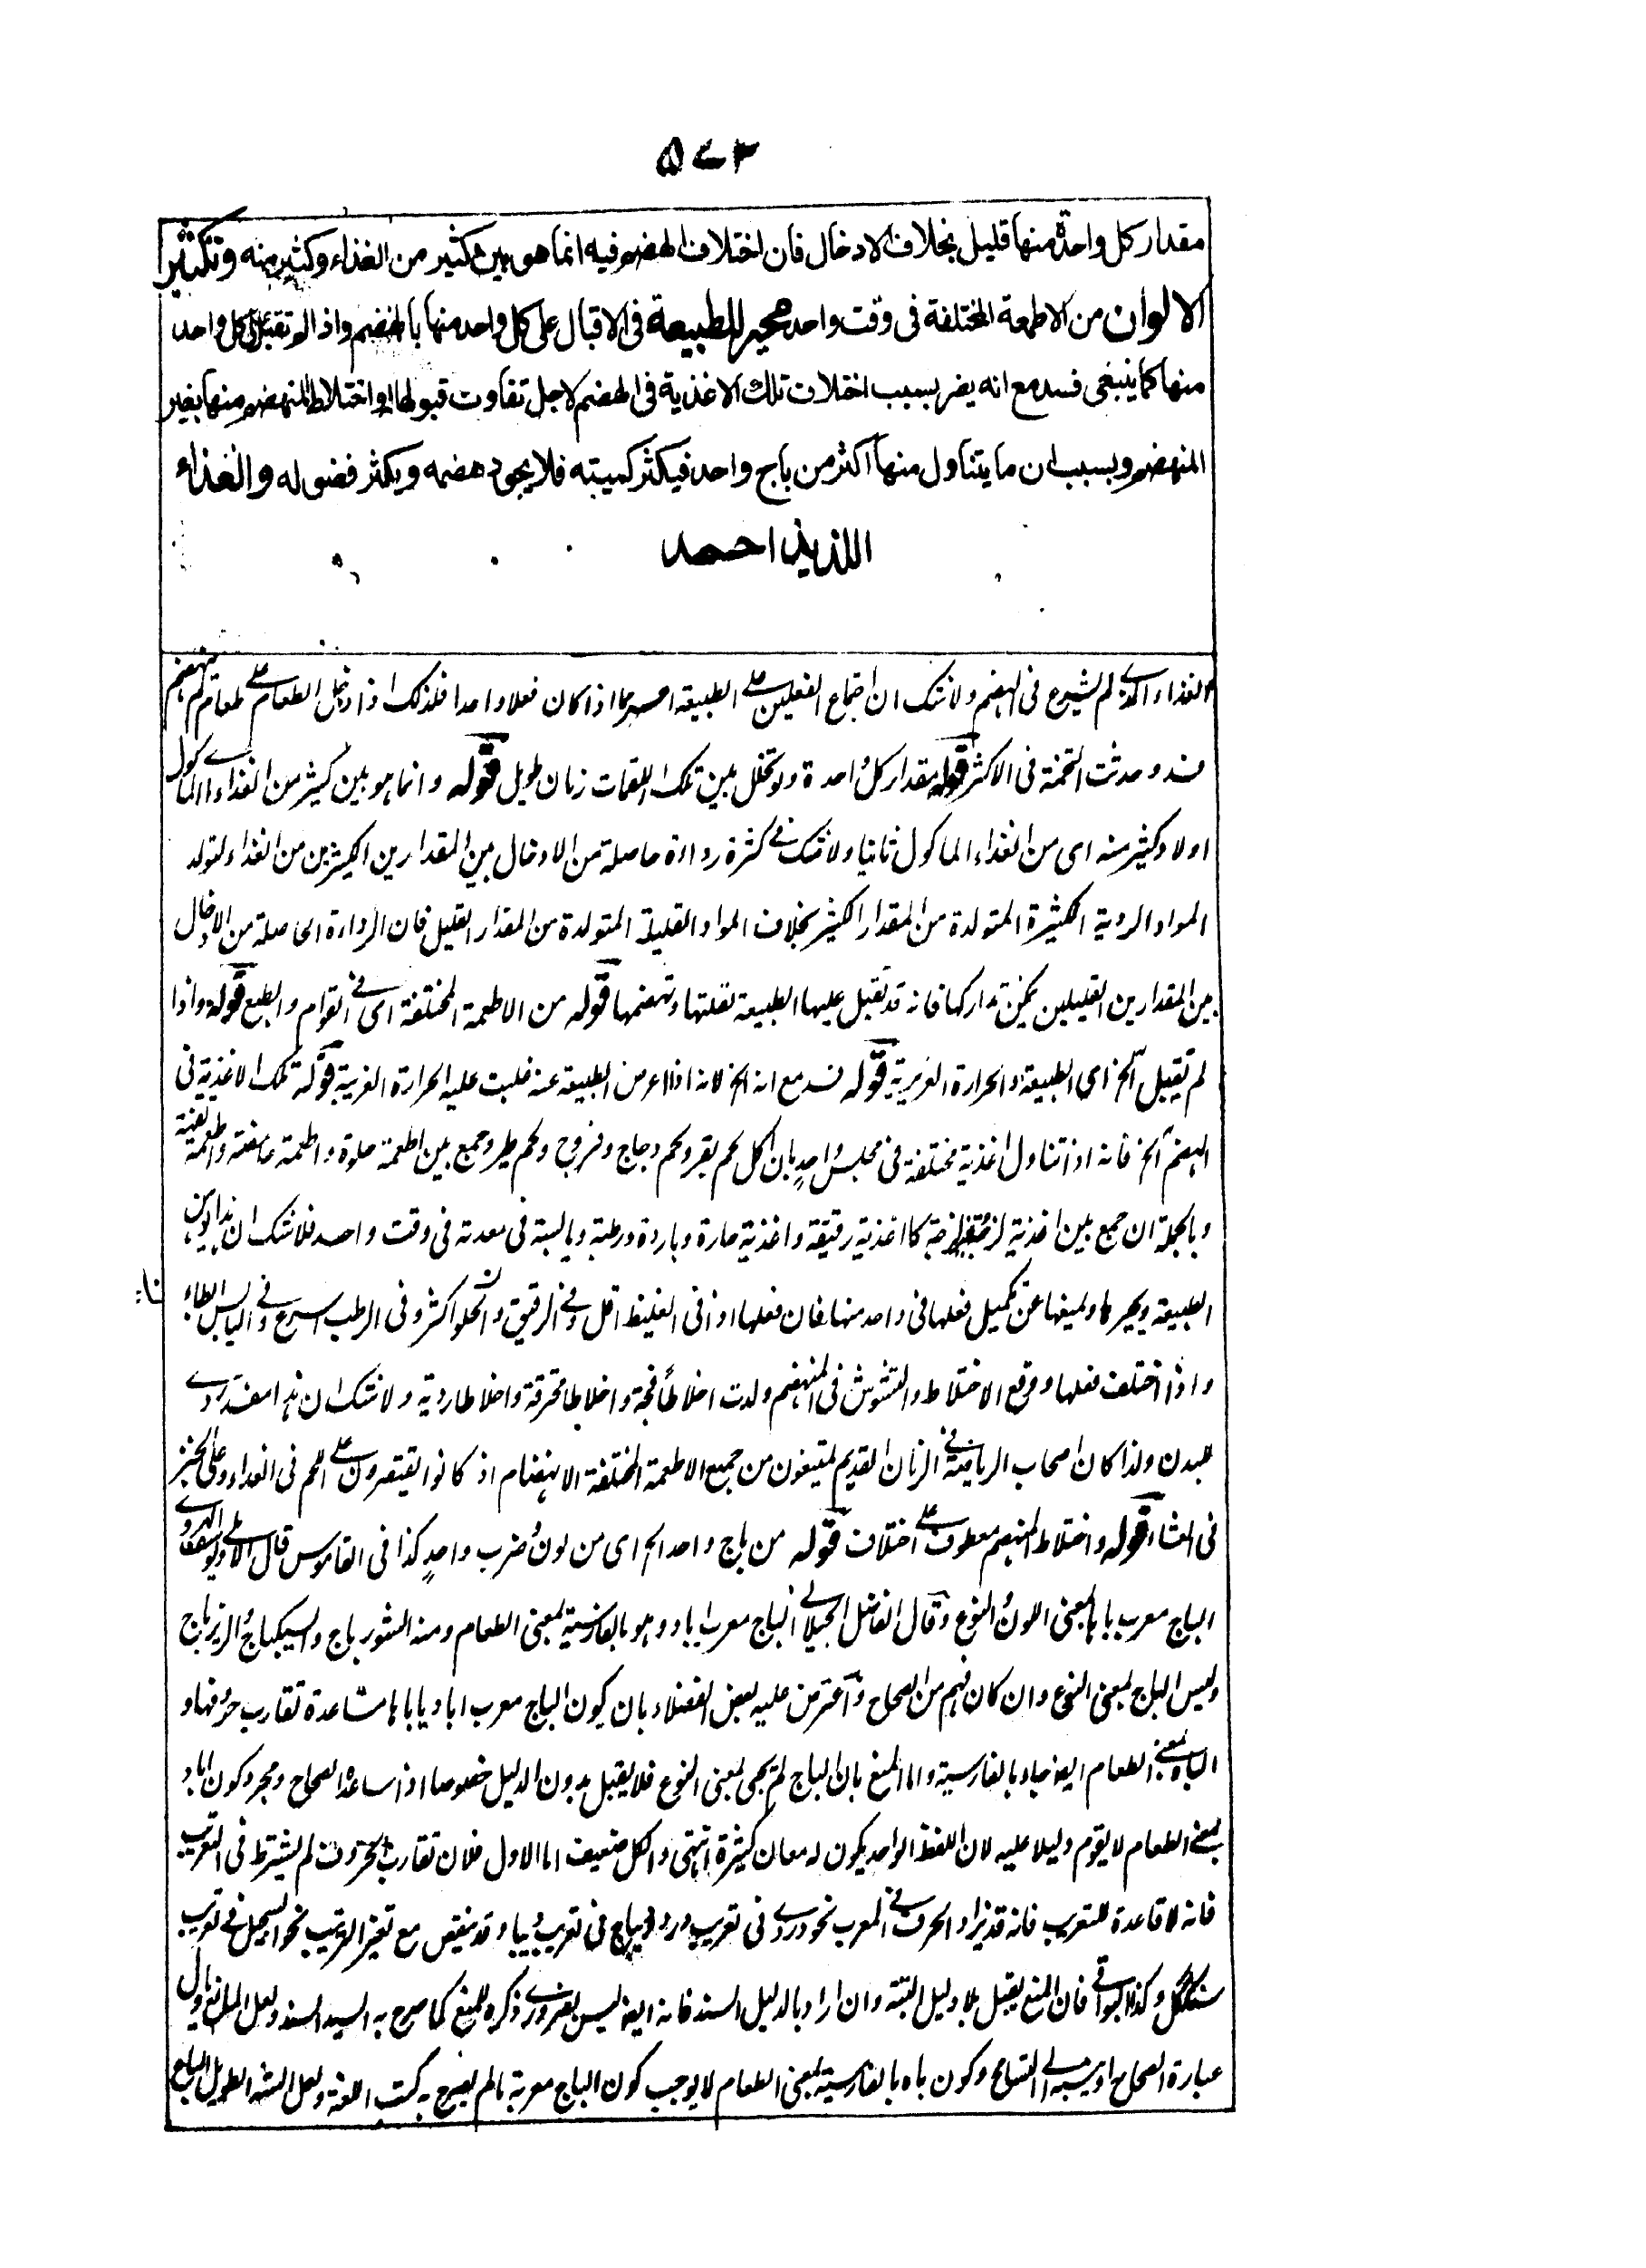 ۵۷۳
مقدار كل واحدة منها قليل بخلاف الادخال فان اختلاف الهضم فيه انما هو بين كثير من الغذاء وكثير منه وتكثير
الالوان من الاطعمة المختلفة فى وقت واحد محير للطبيعة فى الاقبال على كل واحد منها بالهضم واذا لم تقبل على كل واحد
منها كما ينبغى فسد مع انه يضر بسبب اختلاف تلك الاغذية فى الهضم لاجل تفاوت قبولها له واختلاط المنهضم منها بغير
المنهضم وبسبب ان ما يتناول منها اكثر من باج واحد فيكثر كميته فلا يجود هضمه ويكثر فضوله والغذاء
اللذيذ احمد
الغذاء الذى لم يشرع فى الهضم ولا شك ان اجتماع الفعلين على الطبيعة اعسر مما اذا كان فعلا واحدا فلذلك اذا ادخل الطعام على طعام لم ينهضم
فسد وحدثت التخمة فى الاكثر قوله مقدار كل واحدة ولو تخلل بين تلك اللقمات زمان طويل قوله وانما هو بين كثير من الغذاء اى الماكول
اولا وكثير منه اى من الغذاء الماكول ثانيا ولا شك فى كثرة رداءة حاصلة من الادخال بين المقدارين الكثيرين من الغذاء لتولد
المواد الردية الكثيرة المتولدة من المقدار الكثير بخلاف المواد القليلة المتولدة من المقدار القليل فان الرداءة الحاصلة من الادخال
بين المقدارين القليلين يمكن تداركها فانه قد تقبل عليها الطبيعة لقلتها وتهضمها قوله من الاطعمة المختلفة اى فى القوام والطبع قوله واذا
لم تقبل الخ اى الطبيعة والحرارة الغريزية قوله فسد مع انه الخ لانه اذا اعرض الطبيعة عنه غلبت عليه الحرارة الغريبة قوله تلك الاغذية فى
الهضم الخ فانه اذا تناول اغذية مختلفة فى مجلس واحد بان اكل لحم بقر ولحم دجاج وفروج ولحم طير وجمع بين اطعمة حلوة واطعمة عفصة واطعمة تفهة
وبالجملة ان جمع بين اغذية لزجة كاغذية رقيقة واغذية حارة وباردة ورطبة ويابسة فى معدته فى وقت واحد فلا شك ان هذا يوهن
الطبيعة ويحيرها ويعيقها عن تكميل فعلها فى واحد منها فان فعلها اذا فى الغليظ اقل وفى الرقيق والحلو اكثر وفى الرطب اسرع وفى اليابس ابطاء
واذا اختلف فعلها ووقع الاختلاط والتشوش فى المنهضم ولدت اخلاطا فجة واخلاطا محترقة واخلاطا ردية ولا شك ان هذا مفسد ردى
للبدن ولذا كان اصحاب الرياضة فى الزمان القديم يمتنعون من جميع الاطعمة المختلفة الانهضام اذ كانوا يقتصرون على اللحم فى الغداء وعلى الخبز
فى العشاء قوله واختلاط المنهضم معطوف على اختلاف قوله من باج واحد الخ اى من لون ضرب واحد كذا فى القاموس قال الهروى
الباج معرب باها بمعنى اللون النوع وقال الفاضل الجيلانى الباج معرب اباد وهو بالفارسية بمعنى الطعام ومنه الشورباج والسكباج والزيرباج
وليس الباج بمعنى النوع وان كان فهم من الصحاح واعترض عليه بعض الفضلاء بان كون الباج معرب اباد يابا باها مشاعدة تقارب حروفها و
الباه بمعنى الطعام ايضا جاء بالفارسية واما المنع بان الباج لم يجئ بمعنى النوع فلا يقبل بدون الدليل خصوصا اذا ساعده الصحاح ومجرد كون اباد
بمعنى الطعام لا يقوم دليلا عليه لان اللفظ الواحد يكون له معان كثيرة انتهى والكل ضعيف اما الاول فلان تقارب الحروف لم يشترط فى التعريب
فانه لا قاعدة للتعريب فانه قد يزاد الحرف فى المعرب نحو وردى فى تعريب ورد وديباج فى تعريب ديبا وقد ينقص مع تغير الترتيب نحو السجيل فى تعريب
سنگ گل وكذا البواقى فان المنع يقبل بلا دليل البتة وان اراد بالدليل السند فانه ايضا ليس بضرورى ذكره للمنع كما صرح به السيد السند ولعل المانع ياول
عبارة الصحاح او ينسبه الى التسامح وكون باه بالفارسية بمعنى الطعام لا يوجب كون الباج معربة مالم يصرح به كتب اللغة ولعل